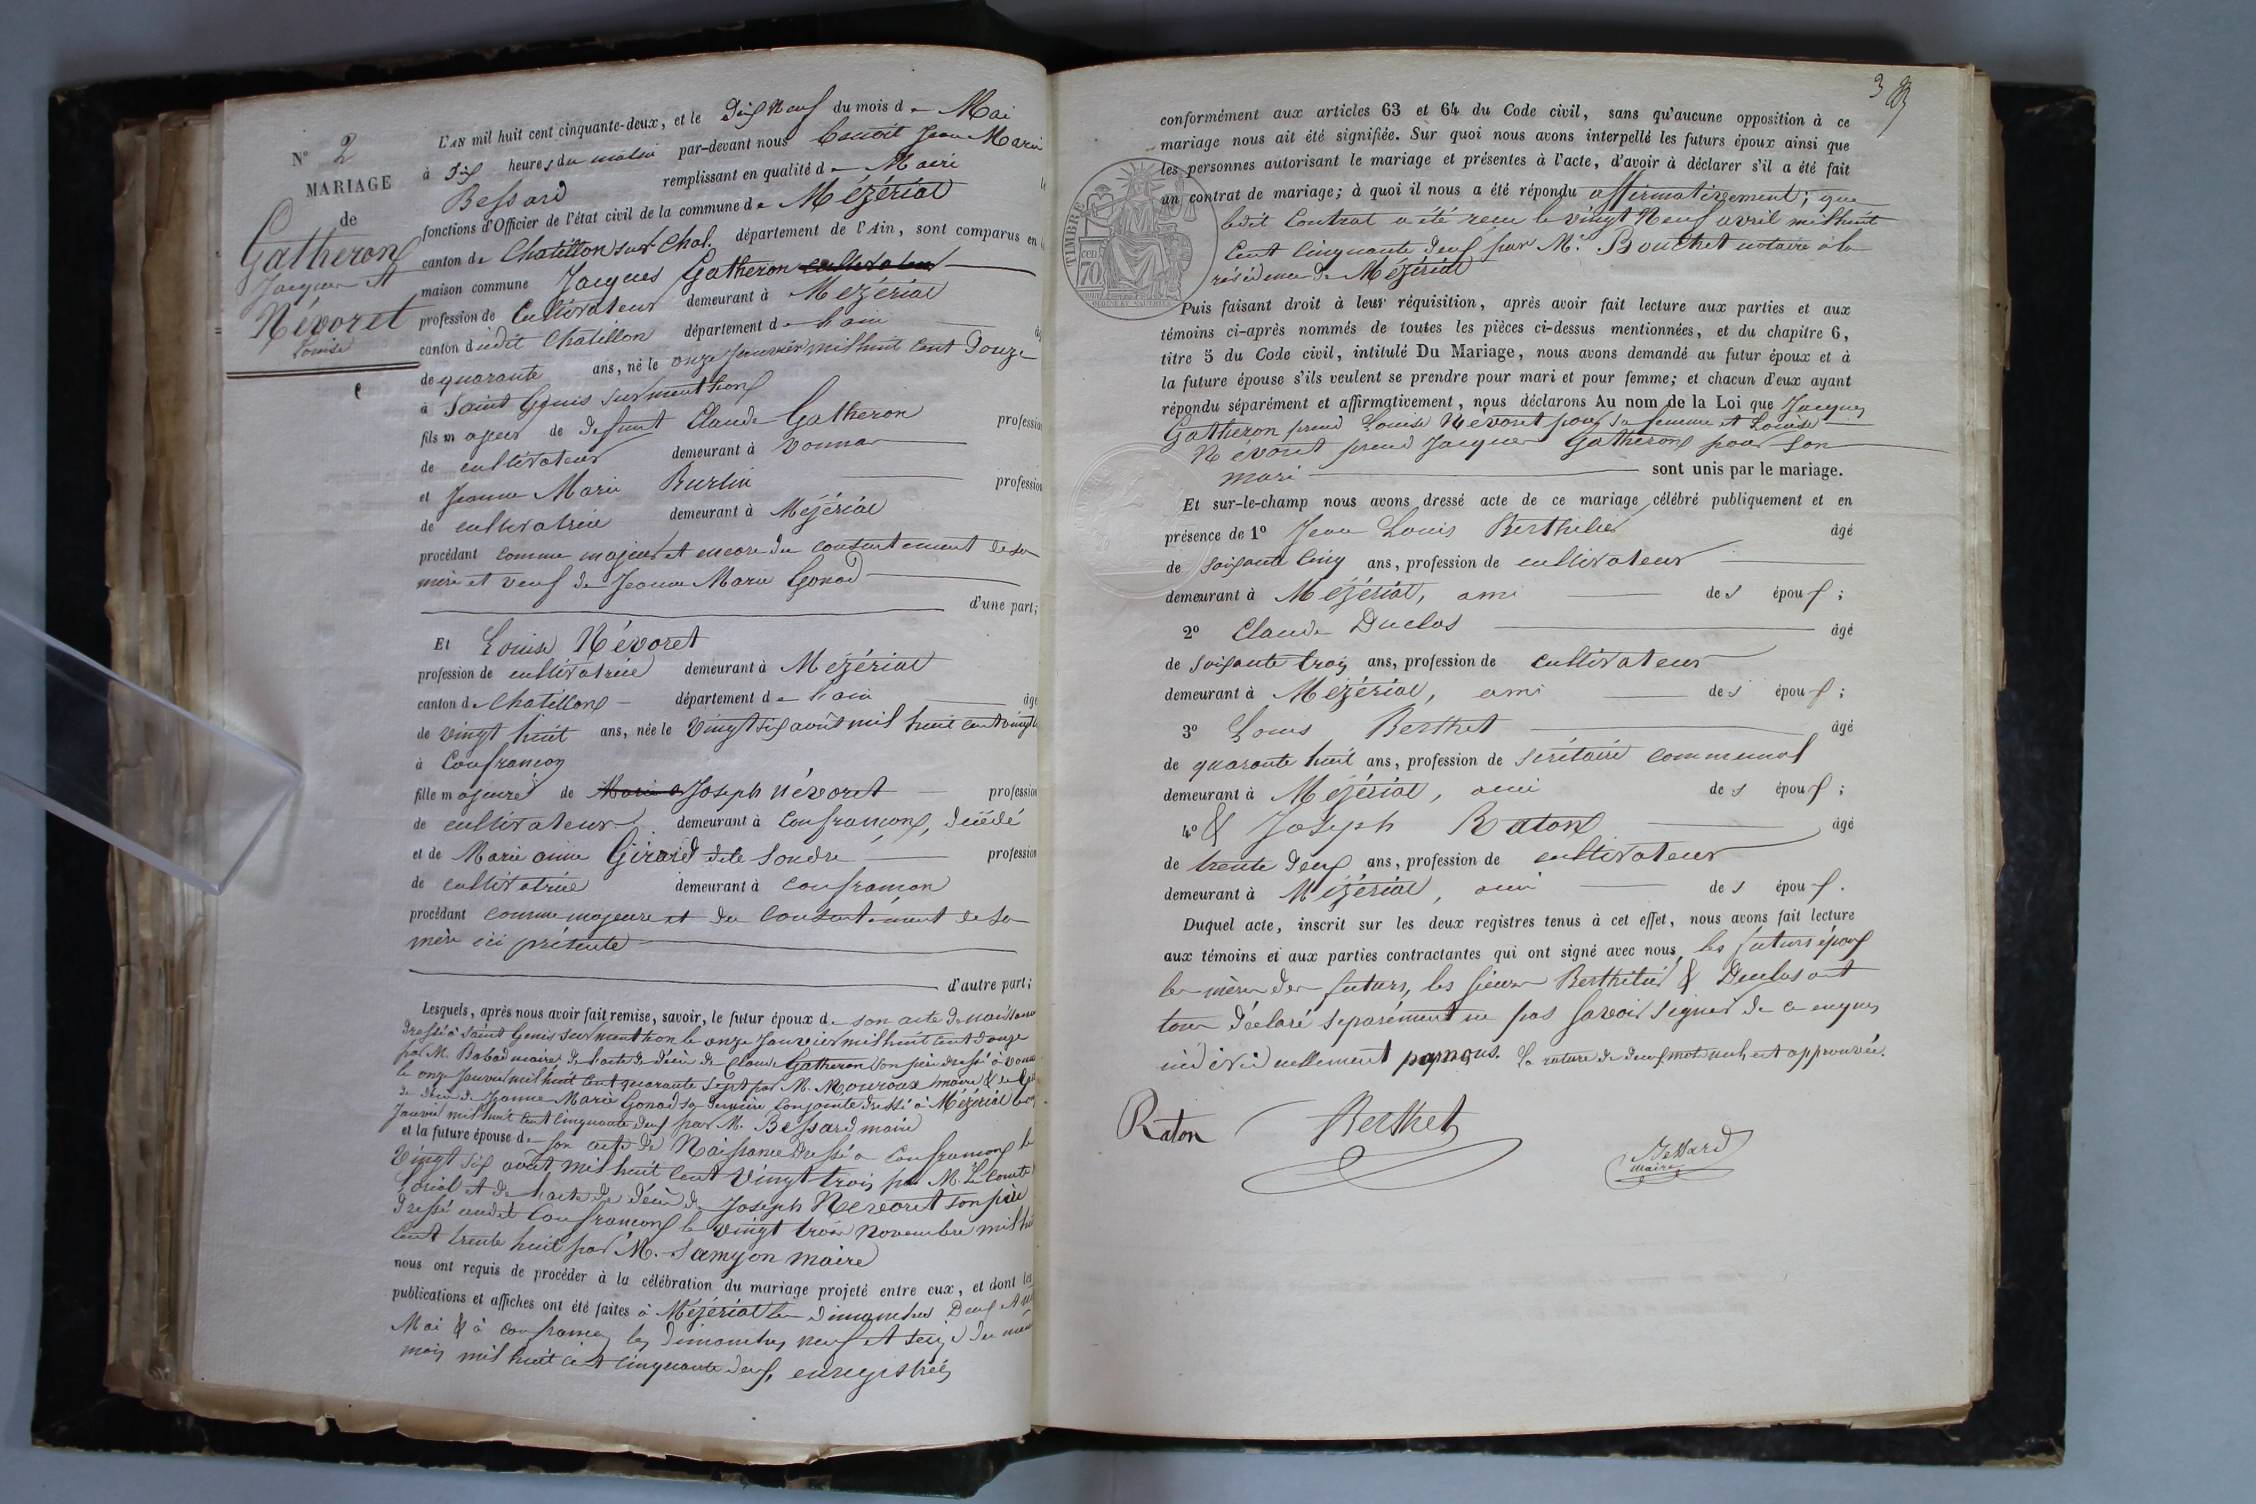 N° 2
MARIAGE
de
Gatheron
Jacques et
Névoret
Louise
L'AN mil huit cent cinquante-deux, et le Dix Neuf du mois de Mai
à Dix heures du matin par-devant nous Benoit Jean Marie
Bessard remplissant en qualité de Maire
fonctions d'Officier de l'état civil de la commune de Mézériat
canton de Chatillon sur Chal. département de l'Ain, sont comparus en la
maison commune Jacques Gatheron cultivateur
profession de Cultivateur demeurant à Mézériat
canton dudit Chatillon département de l'ain
de quarante ans, né le onze Janvier mil huit cent Douze
à Saint Genis sur menthon
fils majeur de defunt Claude Gatheron profession
de cultivateur demeurant à Vonnas
et Jeanne Marie Burlin profession
de cultivatrice demeurant à Mézériat
procédant comme majeur et encore du consentement de sa
mère et veuf de Jeanne Marie Gonod
d'une part;
Et Louise Névoret
profession de cultivatrice demeurant à Mézériat
canton de Chatillon département de l'ain âgé
de vingt huit ans, née le vingt six août mil huit cent vingt
à Confrançon
fille majeure de Marie Joseph Névoret profession
de cultivateur demeurant à Confrançon, décédé
et de Marie anne Girard dite Soudre profession
de cultivatrice demeurant à Confrançon
procédant comme majeure et du Consentement de sa
mère ici présente
d'autre part;
Lesquels, après nous avoir fait remise, savoir, le futur époux de son acte de naissance
dressé à Saint Genis sur menthon le onze Janvier mil huit cent Douze
par M. Babad maire de l'acte de décès de Claude Gatheron son père dressé à Vonnas
le onze Janvier mil huit cent quarante sept par M. Mouroux maire & de
de décès de Jeanne Marie Gonod sa dernière conjointe dressé à Mézériat le
Janvier mil huit cent cinquante deux par M. Bessard maire
et la future épouse de son acte de Naissance dressé à Confrançon le
Vingt six août mil huit cent vingt trois par M. Le Comte
Loriol et de l'acte de décès de Joseph Nevoret son père
dressé audit Confrançon le vingt trois Novembre mil hui
cent trente huit par M. Samyon maire
nous ont requis de procéder à la célébration du mariage projeté entre eux, et dont les
publications et affiches ont été faites à Mézériat les dimanches Deux et neuf
Mai & à Confrançon les Dimanches neuf et seize du même
mois mil huit cent cinquante deux, enregistrées
3
conformément aux articles 63 et 64 du Code civil, sans qu'aucune opposition à ce
mariage nous ait été signifiée. Sur quoi nous avons interpellé les futurs époux ainsi que
les personnes autorisant le mariage et présentes à l'acte, d'avoir à déclarer s'il a été fait
un contrat de mariage; à quoi il nous a été répondu affirmativement; que
ledit Contrat a été reçu le vingt Neuf avril mil huit
Cent Cinquante deux par Me Bouchet notaire à la
résidence de Mézériat
TIMBRE
70
Puis faisant droit à leur réquisition, après avoir fait lecture aux parties et aux
témoins ci-après nommés de toutes les pièces ci-dessus mentionnées, et du chapitre 6,
titre 5 du Code civil, intitulé Du Mariage, nous avons demandé au futur époux et à
la future épouse s'ils veulent se prendre pour mari et pour femme; et chacun d'eux ayant
répondu séparément et affirmativement, nous déclarons Au nom de la Loi que Jacques
Gatheron prend Louise Névoret pour sa femme et Louise
Névoret prend Jacques Gatheron pour son
mari sont unis par le mariage.
Et sur-le-champ nous avons dressé acte de ce mariage célébré publiquement et en
présence de 1° Jean Louis Berthelier âgé
de soixante cinq ans, profession de cultivateur
demeurant à Mézériat, ami des époux;
2° Claude Duclos âgé
de soixante trois ans, profession de cultivateur
demeurant à Mézériat, ami des époux;
3° Louis Berthet âgé
de quarante huit ans, profession de secrétaire communal
demeurant à Mézériat, ami des époux;
4° & Joseph Raton âgé
de trente deux ans, profession de cultivateur
demeurant à Mézériat, ami des époux.
Duquel acte, inscrit sur les deux registres tenus à cet effet, nous avons fait lecture
aux témoins et aux parties contractantes qui ont signé avec nous, les futurs époux
les mères des futurs, les sieurs Berthelier & Duclos ont
tous déclaré séparément ne pas savoir signer de ce enquis
individuellement par nous. La rature de deux mots nuls est approuvée.
Raton Berthet Bessard
maire